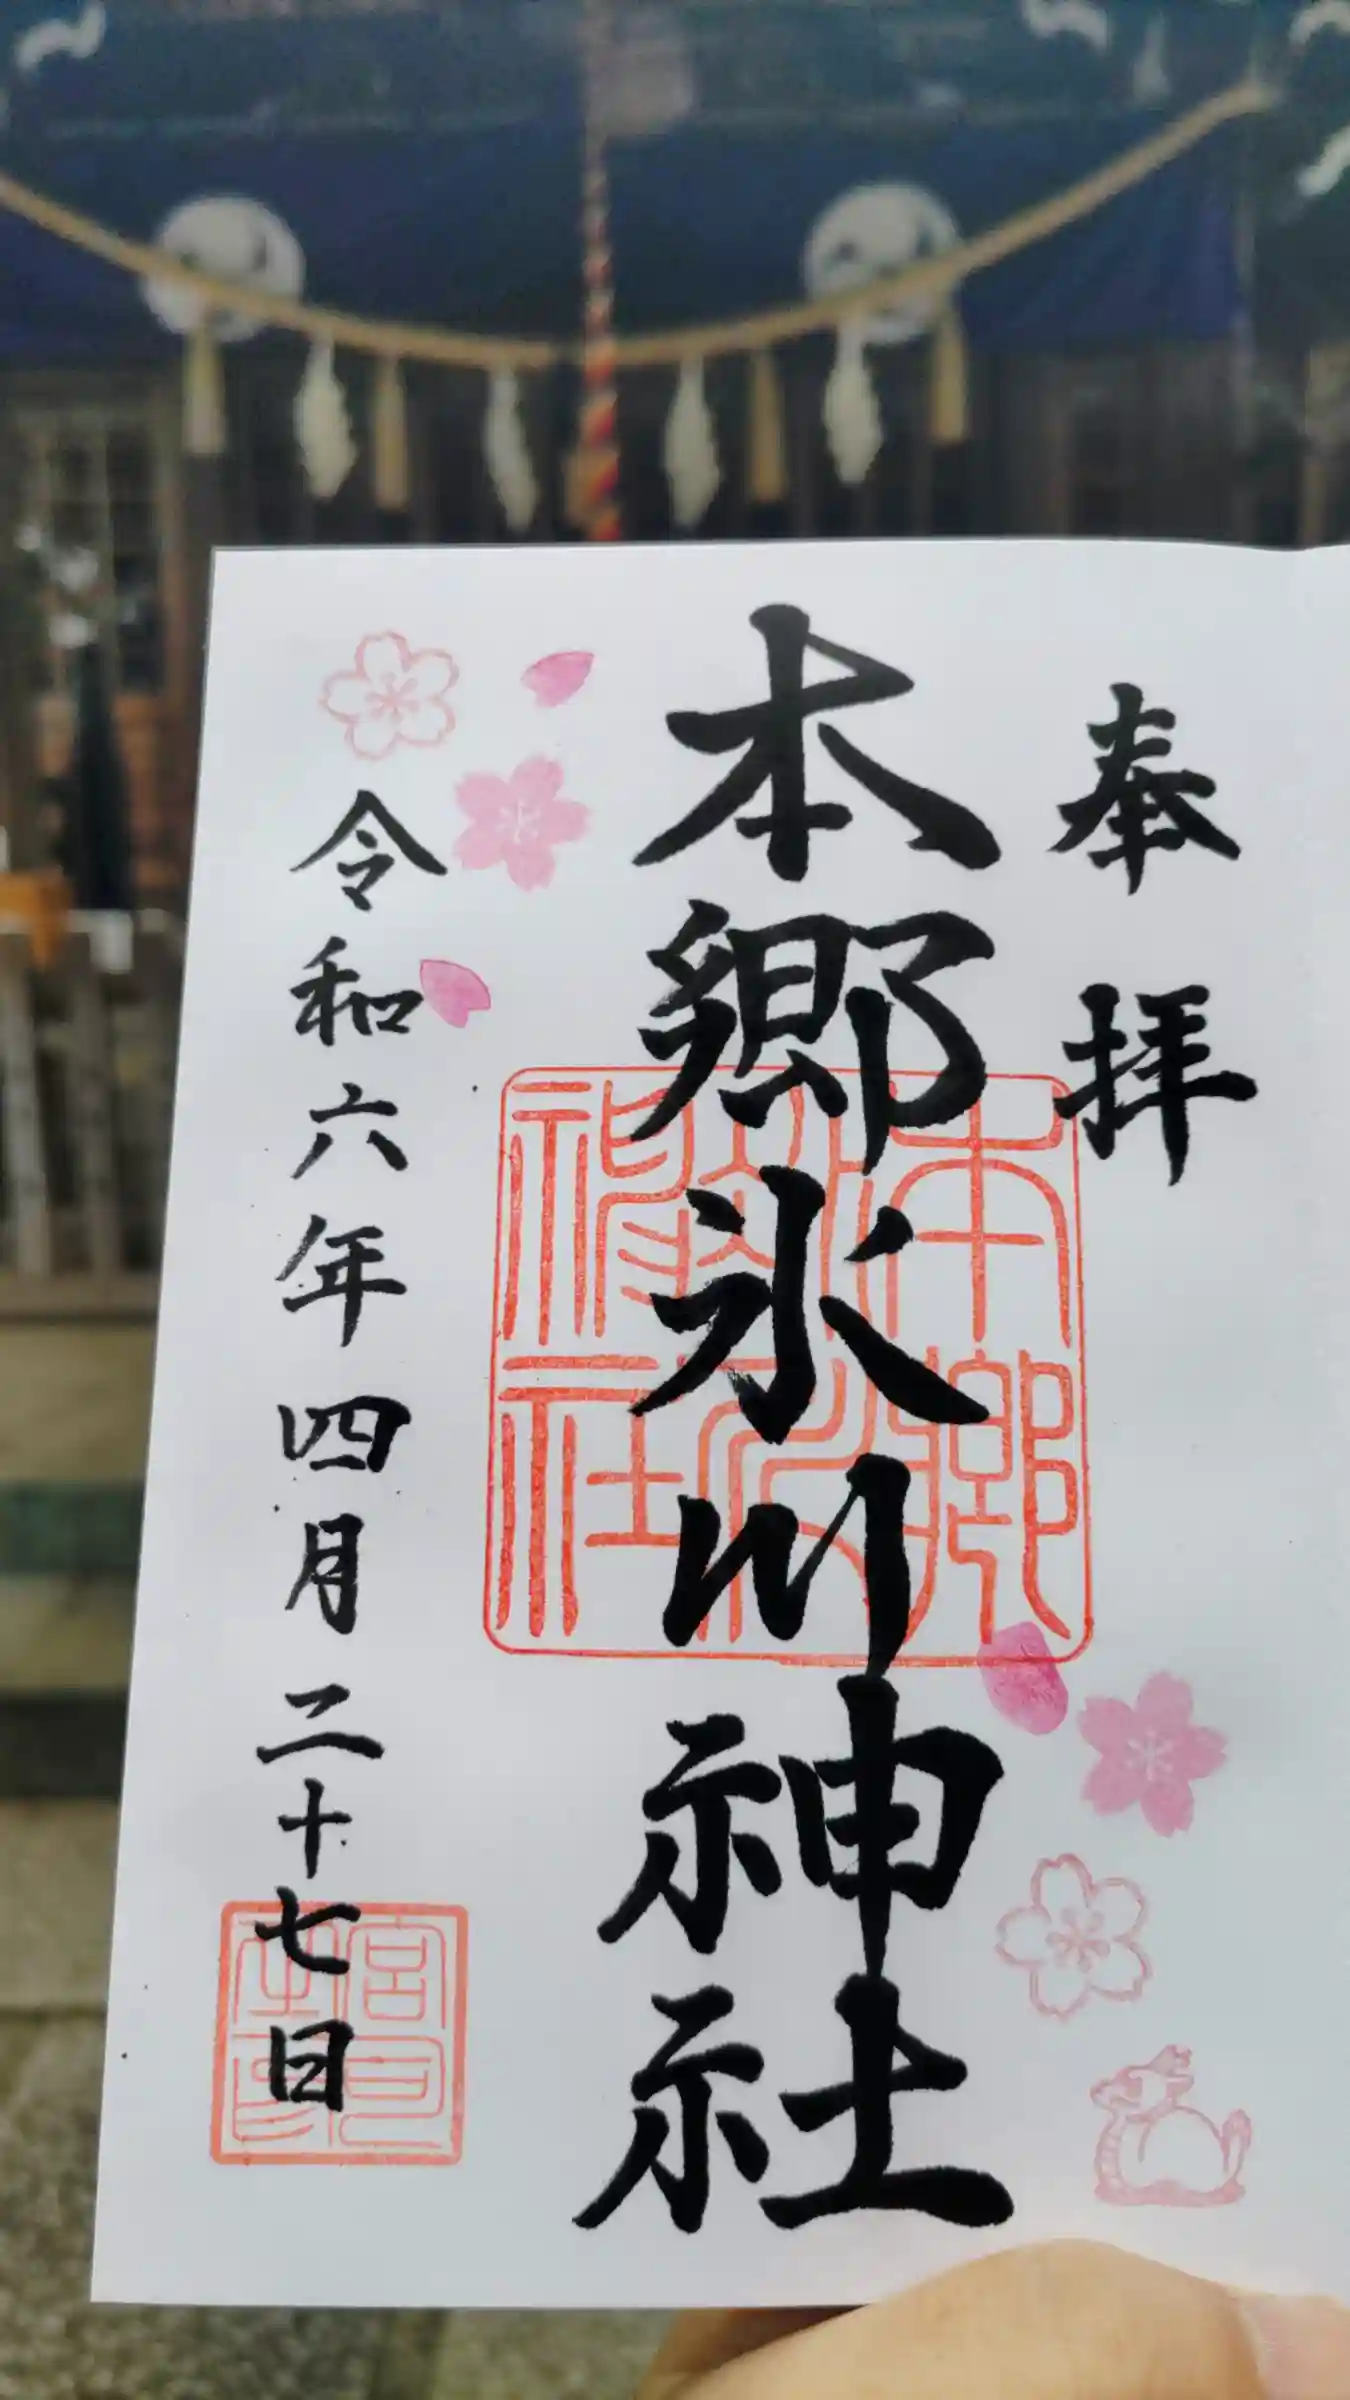 奉拝
本郷氷川神社
本郷氷川神社
令和六年四月二十七日